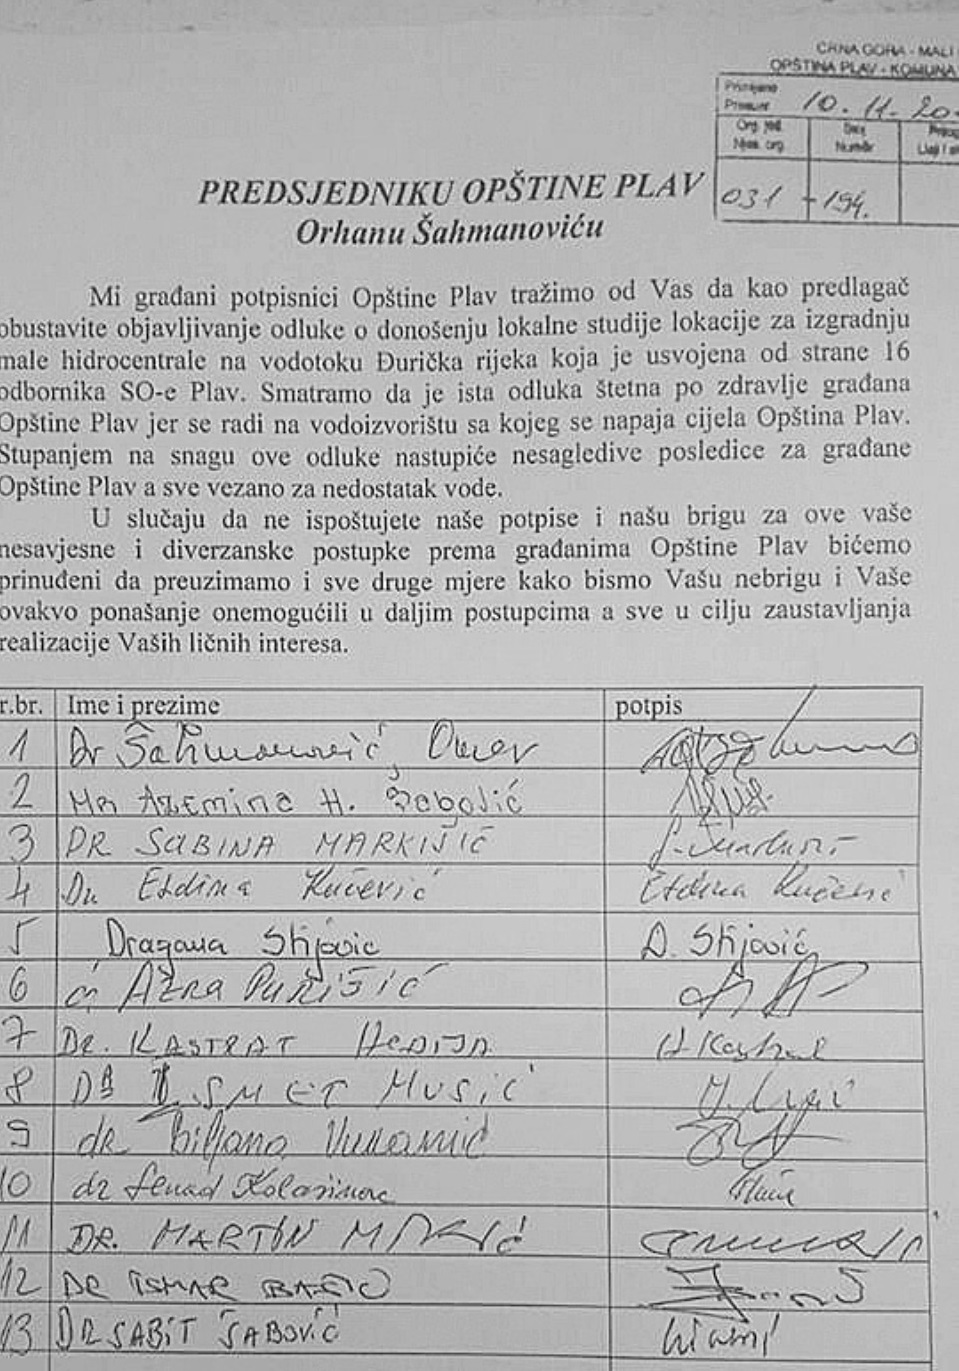 CRNA GORA - MALI
OPŠTINA PLAV - KOMUNA
Primljeno
10. 11. 20
Org. jed. Broj
Njes. org. Numër
031 - 194.
PREDSJEDNIKU OPŠTINE PLAV
Orhanu Šahmanoviću
Mi građani potpisnici Opštine Plav tražimo od Vas da kao predlagač
obustavite objavljivanje odluke o donošenju lokalne studije lokacije za izgradnju
male hidrocentrale na vodotoku Đurička rijeka koja je usvojena od strane 16
odbornika SO-e Plav. Smatramo da je ista odluka štetna po zdravlje građana
Opštine Plav jer se radi na vodoizvorištu sa kojeg se napaja cijela Opština Plav.
Stupanjem na snagu ove odluke nastupiće nesagledive posledice za građane
Opštine Plav a sve vezano za nedostatak vode.
U slučaju da ne ispoštujete naše potpise i našu brigu za ove vaše
nesavjesne i diverzanske postupke prema građanima Opštine Plav bićemo
prinuđeni da preuzimamo i sve druge mjere kako bismo Vašu nebrigu i Vaše
ovakvo ponašanje onemogućili u daljim postupcima a sve u cilju zaustavljanja
realizacije Vaših ličnih interesa.
r.br. Ime i prezime potpis
1 Dr Šahmanović Omer
2 Mr Azemina H.
3 DR SABINA MARKIŠIĆ
4 Dr Eldina Kučević Eldina Kučević
5 Dragana Stijovic D. Stijović
6 AZRA PURIŠIĆ
7 DR. KASTRAT HEDIJA H Kastrat
8 DR ISMET MUSIĆ
9 dr Biljana
10 dr Senad Kolašinac
11 DR. MARTIN
12 DR ISMAR BAŠIĆ
13 DR SABIT ŠABOVIĆ